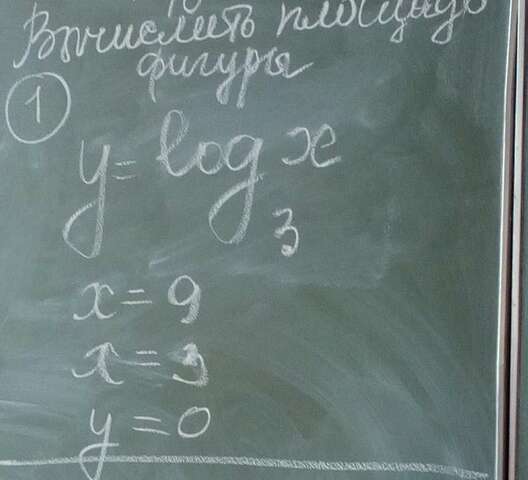 Вычислить площадь
фигуры
1
y = log₃ x
x = 9
x = 3
y = 0